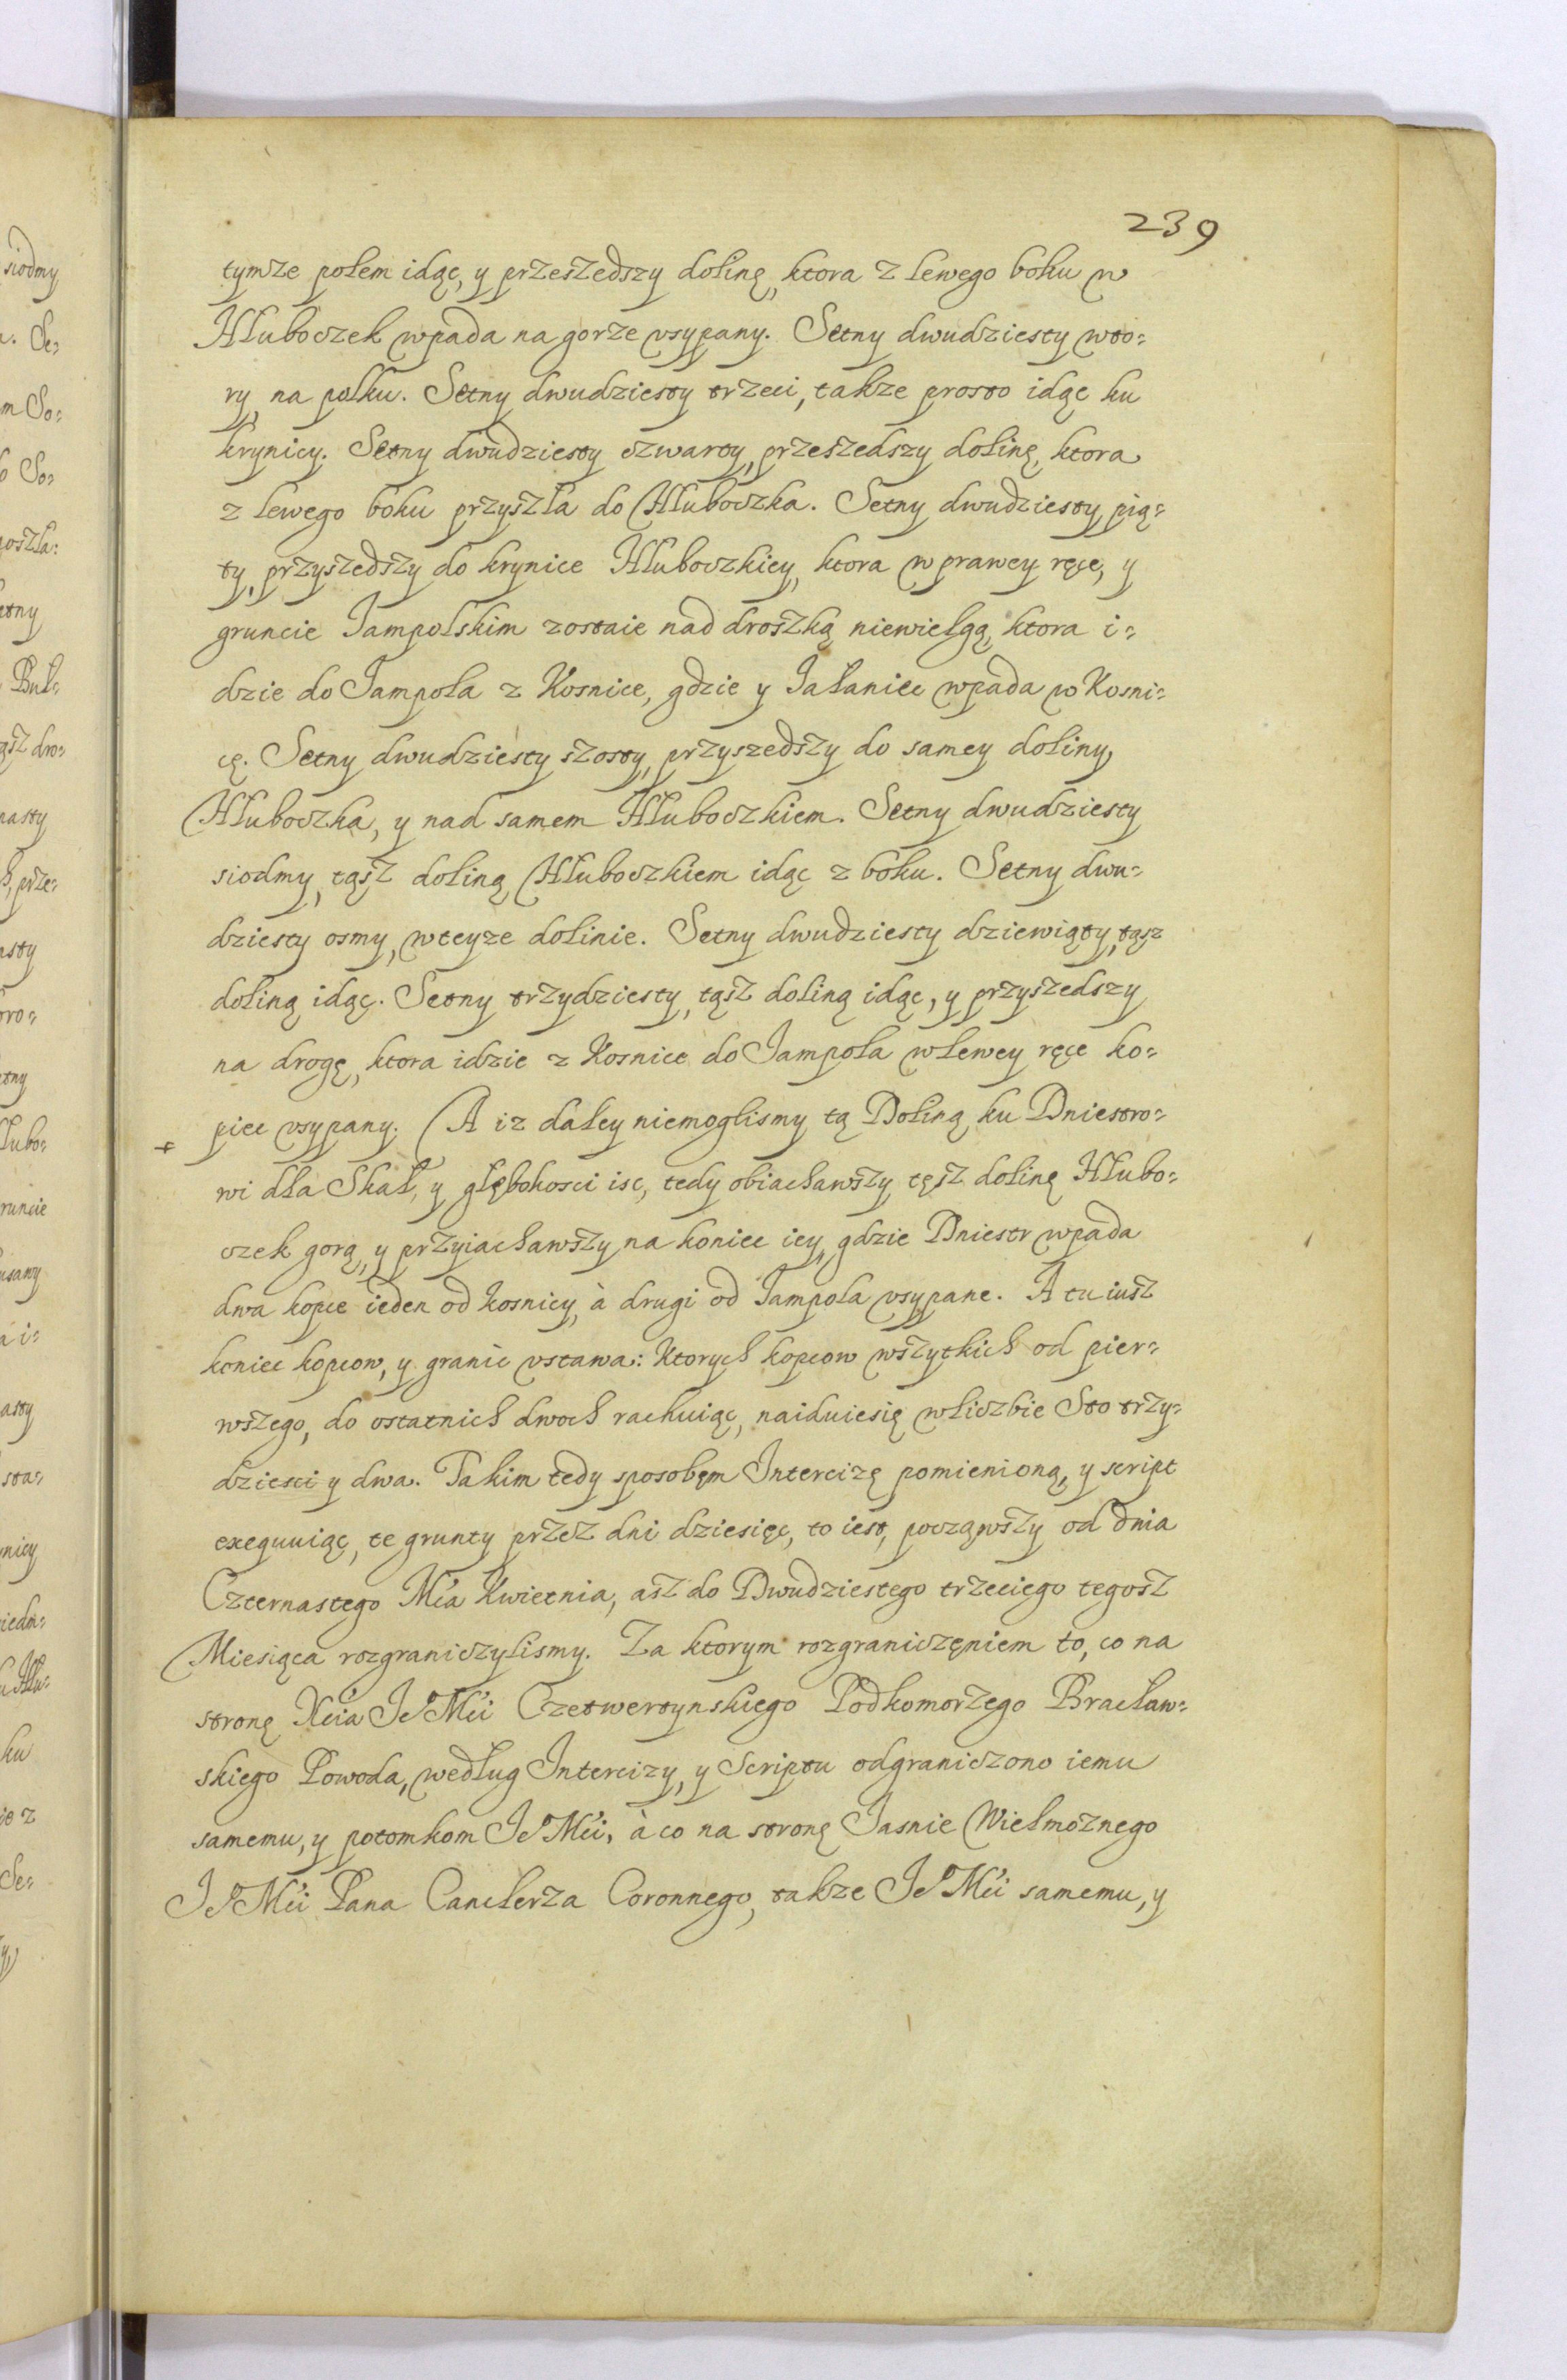 239
tymże polem idąc, y przeszedszy dolinę, ktora z lewego boku w
Hłuboczek wpada na gorze vsypany. Setny dwudziesty wto=
ry, na polku. Setny dwudziesty trzeci, także prosto idąc ku
krynicy. Setny dwudziesty czwarty, przeszedszy dolinę, ktora
z lewego boku przyszła do Hłuboczka. Setny dwudziesty pią=
ty, przyszedszy do krynice Hłuboczkiey, ktora w prawey ręce, y
gruncie Jampolskim zostaie nad droszką niewielgą, ktora i=
dzie do Jampola z Kosnice, gdzie y Jałaniec wpada w Kosni=
cę. Setny dwudziesty szosty, przyszedszy do samey doliny
Hłuboczka, y nad samem Hłuboczkiem. Setny dwudziesty
siodmy, tąsz doliną Hłuboczkiem idąc z boku. Setny dwu=
dziesty osmy, wteyze dolinie. Setny dwudziesty dziewiąty, tąsz
doliną idąc. Setny trzydziesty, tąsz doliną idąc, y przyszedszy
na drogę, ktora idzie z Kosnice do Jampola wlewey ręce ko=
piec vsypany. A iz daley niemoglismy tą Doliną ku Dniestro=
wi dla Skał, y głębokosci isc, tedy obiachawszy tęsz dolinę Hłubo=
czek gorą, y przyiachawszy na koniec iey, gdzie Dniestr wpada
dwa kopce ieden od kosnicy, à drugi od Jampola vsypane. A tu iusz
koniec kopcow, y granic vstawa: Ktorych kopcow wszytkich od pier=
wszego, do ostatnich dwoch rachuiąc, naiduiesię wliczbie Sto trzy=
dziesci y dwa. Takim tedy sposobęm Intercizę pomienioną, y script
exequuiąc, te grunty przez dni dziesięc, to iest, począwszy od dnia
Czternastego Mca Kwietnia, asz do Dwudziestego trzeciego tegosz
Miesiąca rozgraniczylismy. Za ktorym rozgraniczęniem to, co na
stronę Xcia Je Mci Czetwertynskiego Podkomorzego Bracław=
skiego Powoda, według Intercizy, y Scriptu odgraniczono iemu
samemu, y potomkom Je Mci, à co na stronę Jasnie Wielmożnego
Je Mci Pana Canclerza Coronnego, także Je Mci samemu, y